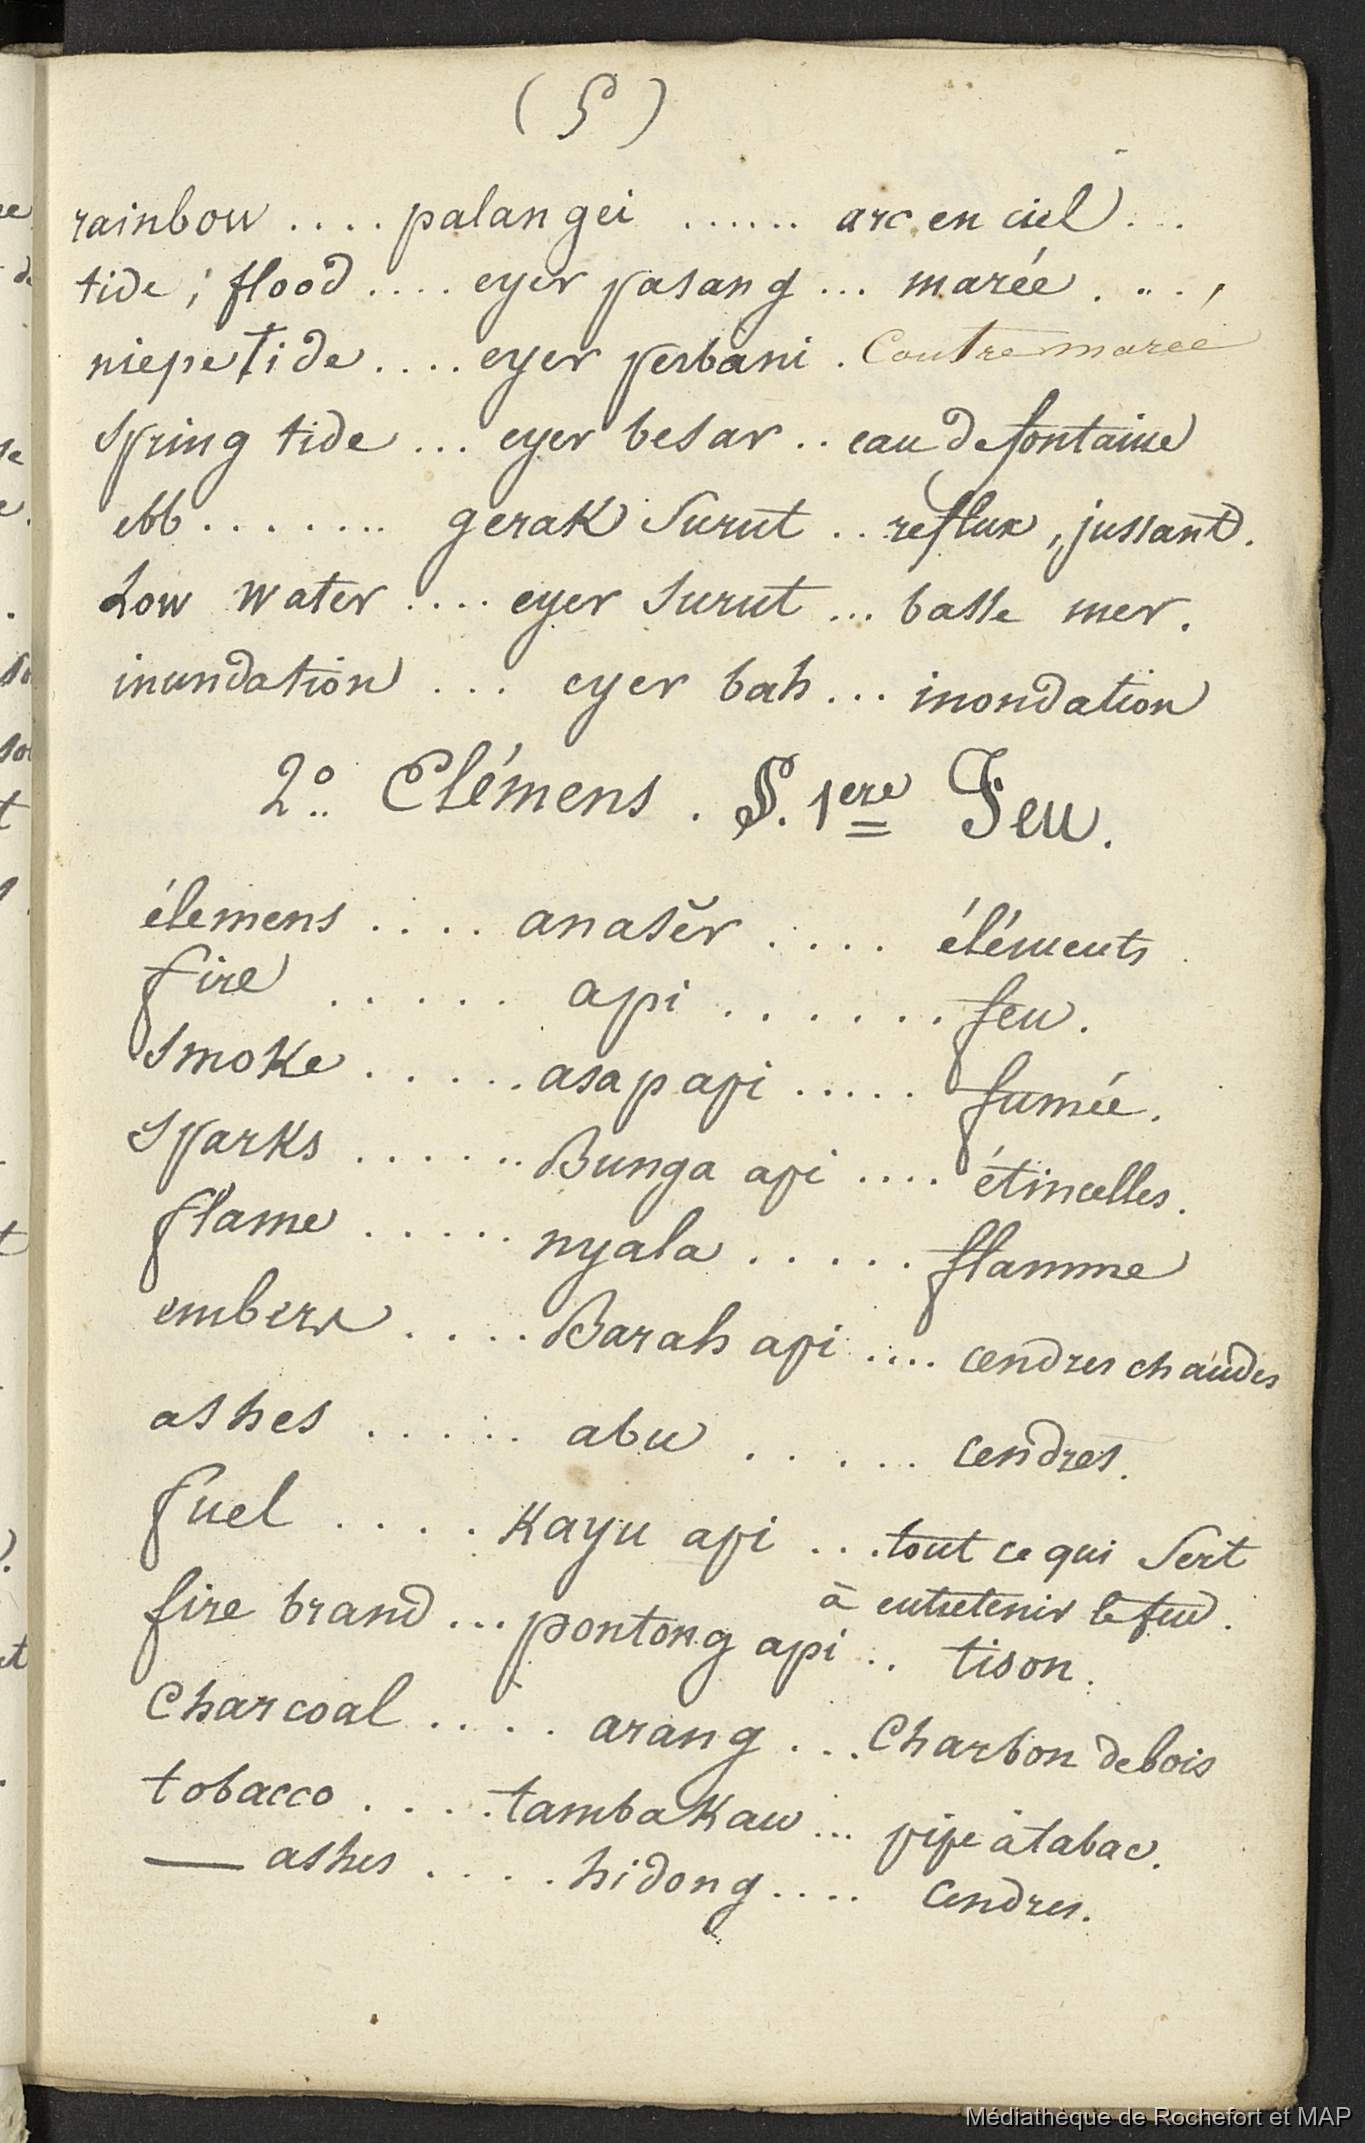 (5)
rainbow .... palangei ...... arc en ciel ...
tide; flood .... eyer pasang ... marée ....,
niepe tide .... eyer perbani . Contre marée
spring tide ... eyer besar .. eau de fontaine
ebb ....... gerak surut .. reflux, jussant.
Low water .... eyer surut ... basse mer.
inundation ... eyer bah ... inondation
2o. Elémens. §. 1ere Feu.
élemens .... anasĕr .... éléments
fire ..... api ...... feu.
smoke ..... asap api ..... fumée.
sparks ...... Bunga api .... étincelles.
flame ..... nyala ..... flamme
embers .... Barah api .... cendres chaudes
ashes ..... abu ..... cendres.
fuel .... Kayu api ... tout ce qui sert
à entretenir le feu.
fire brand ... pontong api .. tison.
Charcoal .... arang ... Charbon de bois
tobacco .... tambakau ... pipe à tabac.
— ashes .... hidong .... cendres.
re
de
se
e.
t
et
Médiathèque de Rochefort et MAP